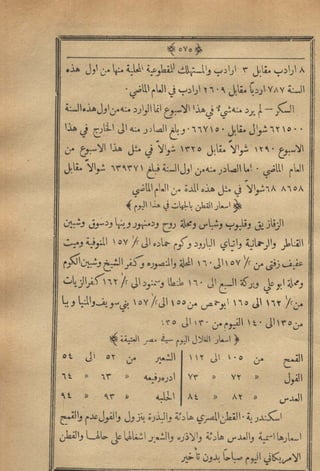 ﴿٥٧٥﴾
٨ ارادب مقابل ٣ ارادب والمستهلك للمقطوعية المحلية منها من اول هذه
السنة ٧٨٧ اردبًّا مقابل ٢٦٠٩ ارادب في العام الماضي
السكر – لم يرد منه شيءٌ في هذا الاسبوع انما الوارد منه من اول هذه السنة
٦٢١٥٠٠ شوال مقابل ٠٦٦٧١٥٠ وبلغ الصادر منه الى الخارج في هذا
الاسبوع ١٢٩٠ شوالاً مقابل ١٣٢٥ شوالاً في مثل هذا الاسبوع من
العام الماضي ٠ اما الصادر منه من اول السنة فبلغ ٦٣٩٣٧١ شوالاً مقابل
٨٦٥٨ ٦٨ شوالاً في مثل هذه المدة من العام الماضي
﴿ اسعار القطن بالجهات في هذا اليوم ﴾
الزقازيق وقليوب وشباس ومحلة روح ودمنهور وبنها ودسوق وشبين
القناطر والرحمانية واتياي البارود وكوم حماده الى ١٥٧/ المنوفية وميت
عفيف زفتى من /١٥٧ الى ١٦٠ المحلة والمنصوره وكفر الشيخ وشبين الكوم
ومحلة ابو علي وبركة السبع الى ١٦٠ طنطا وسمنود الى /١٦٢ كفر الزيات
من /١٦٢ الى ١٦٥ ابو حمص من ١٥٥ الى /١٥٧ بني سويف والمنيا وببا
من ١٣٥ الى ١٤٠ الفيوم من ١٣٠ الى ١٣٥
﴿ اسعار الغلال اليوم في مصر العتيقة ﴾
القمح من ١٠٥ الى ١١٢ الشعير من ٥٢ الى ٥٤
الفول « ٧٢ « ٧٣ اذره رفيعه « ٦٣ « ٦٤
العدس « ٨٢ « ٨٤ الحلبه « ٩٣ « ٩٤
اسكندرية ٠ القطن المصري هادئة والبذرة بنزول والفول عدم والقمح
اسعارها اسمية والعدس هادئة والاذره والشعير اشغالها على حالها والقطن
الامريكاني اليوم صباحاً بدون تأخير